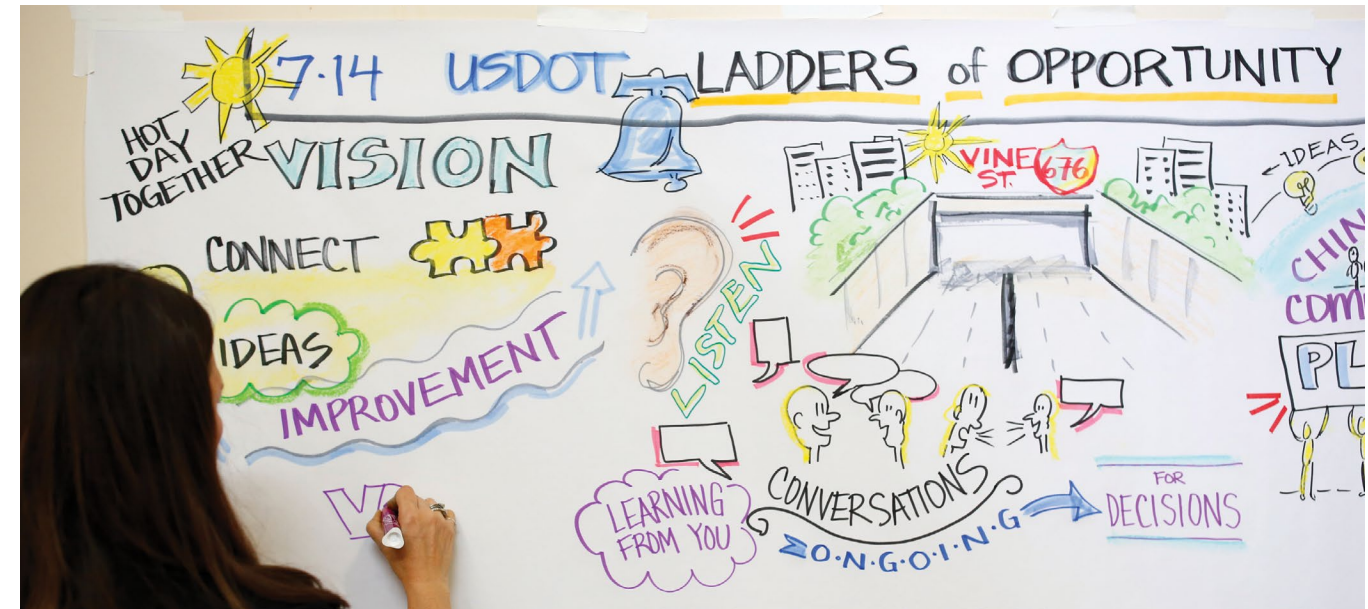 7.14 USDOT LADDERS of OPPORTUNITY
HOT
DAY
TOGETHER
VISION
CONNECT
IDEAS
IMPROVEMENT
LISTEN
VINE
ST.
676
IDEAS
LEARNING
FROM YOU
CONVERSATIONS
O·N·G·O·I·N·G
FOR
DECISIONS